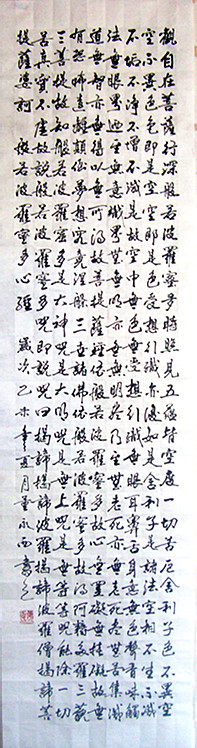 觀自在菩薩行深般若波羅蜜多時照見五蘊皆空度一切苦厄舍利子色不異空
空不異色色即是空空即是色受想行識亦復如是舍利子是諸法空相不生不滅
不垢不淨不增不減是故空中無色無受想行識無眼耳鼻舌身意無色聲香味觸
法無眼界乃至無意識界無無明亦無無明盡乃至無老死亦無老死盡無苦集滅
道無智亦無得以無所得故菩提薩埵依般若波羅蜜多故心無罣礙無罣礙故無
有恐怖遠離顛倒夢想究竟涅槃三世諸佛依般若波羅蜜多故得阿耨多羅三藐
三菩提故知般若波羅蜜多是大神咒是大明咒是無上咒是無等等咒能除一切
苦真實不虛故說般若波羅蜜多咒即說咒曰揭諦揭諦波羅揭諦波羅僧揭諦菩
提薩婆訶 般若波羅蜜多心經 歲次己未年夏月